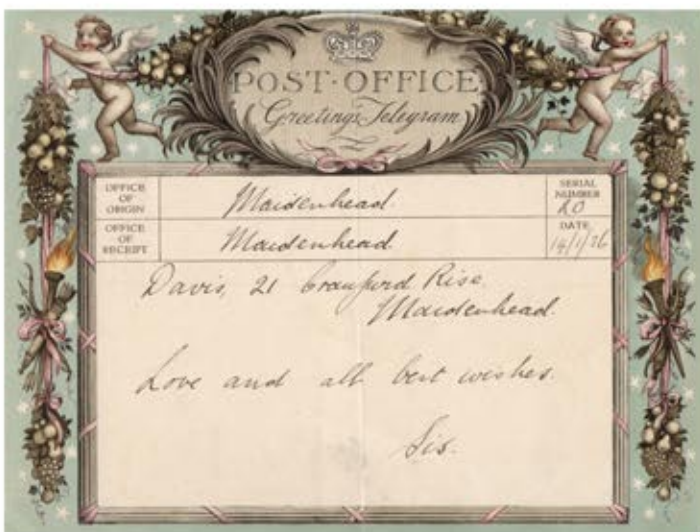 POST·OFFICE
Greetings Telegram
OFFICE
OF
ORIGIN
Maidenhead.
SERIAL
NUMBER
20
OFFICE
OF
RECEIPT
Maidenhead.
DATE
Davis, 21 Craufurd Rise,
Maidenhead.
Love and all best wishes.
Sis.